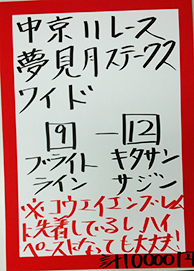 中京11レース
夢見月ステークス
ワイド
9 — 12
ブライト キタサン
ライン サジン
※コウエイエンブレム
に先着しているし、ハイ
ペースになっても大丈夫!
計10000円